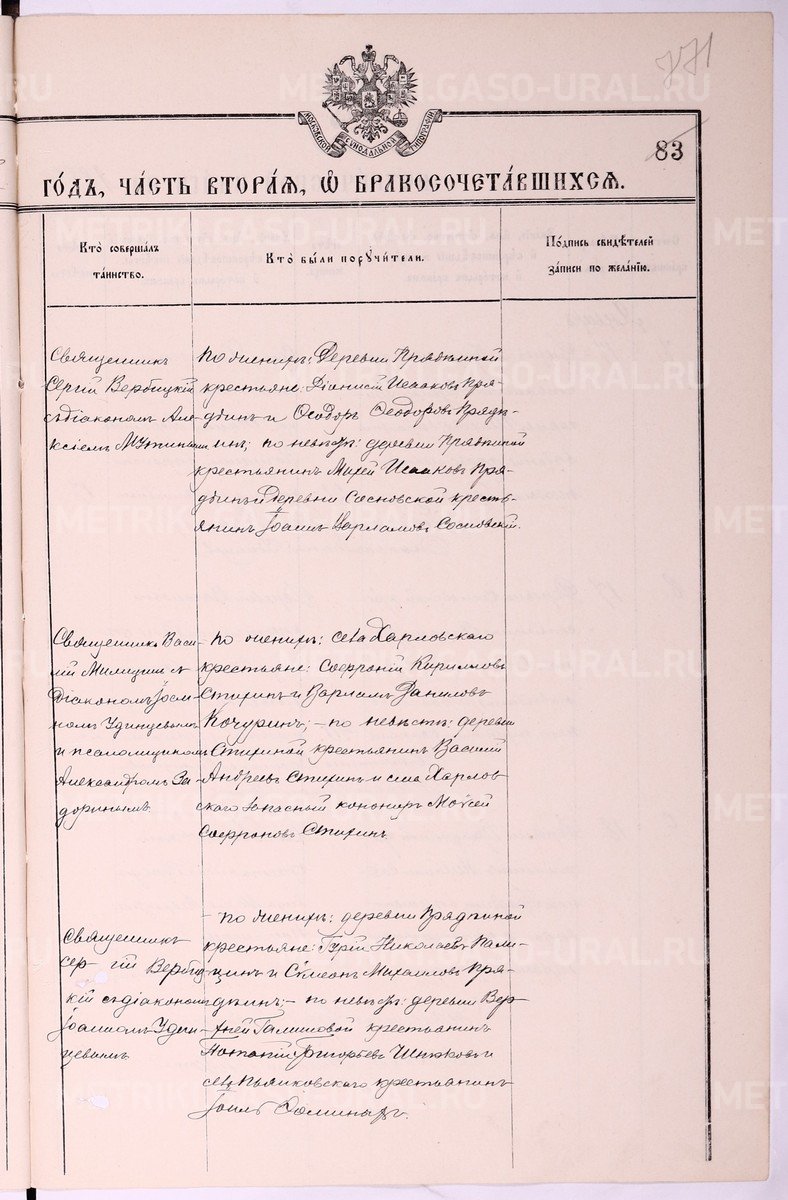 771
МОСКОВСКОЙ СѴНОДАЛЬНОЙ ТИПОГРАФІИ
83
ГО́ДЪ, ЧА́СТЬ ВТОРА́Ѧ, Ѽ БРАКОСОЧЕТА́ВШИХСѦ.
Кто̀ соверша́лъ
та́инство.
Кто̀ бы́ли порꙋчи́тели.
По́дпись свидѣ́телей
за́писи по жела́нїю.
Священникъ
Сергій Вербицкій
съ діакономъ Але-
ксіемъ
По женихѣ: деревни Прядкиной
крестьяне: Діонисій Исааковъ Пря-
дкинъ и Ѳеодоръ Ѳеодоровъ Прядк-
инъ; по невѣстѣ: деревни Прядкиной
крестьянинъ Михей Исааковъ Пря-
дкинъ и деревни Сосновской кресть-
янинъ Іоаннъ Варламовъ Сосновскій.
Священникъ Васи-
лій Милицинъ съ
діакономъ Іоан-
номъ Удинцевымъ
и псаломщикомъ
Александромъ За-
доринымъ.
По женихѣ: села Харловскаго
крестьяне: Софроній Кирилловъ
Стихинъ и Варлаамъ Даниловъ
Кочуринъ; – по невѣстѣ: деревни
Стихиной крестьянинъ Василій
Андреевъ Стихинъ и села Харлов
скаго запасный канониръ Моѵсей
Софроновъ Стихинъ
Священникъ
Сер гій Вербиц-
кій съ діакономъ
Іоанномъ Удин-
цевымъ
– По женихѣ: деревни Прядкиной
крестьяне: Гурій Николаевъ
и Сѵмеонъ Михаиловъ Пря-
дкинъ; – по невѣстѣ: деревни Вер-
хней Галишовой крестьянинъ
Потапій Григорьевъ и
села крестьянинъ
METRIKI.GASO-URAL.RU